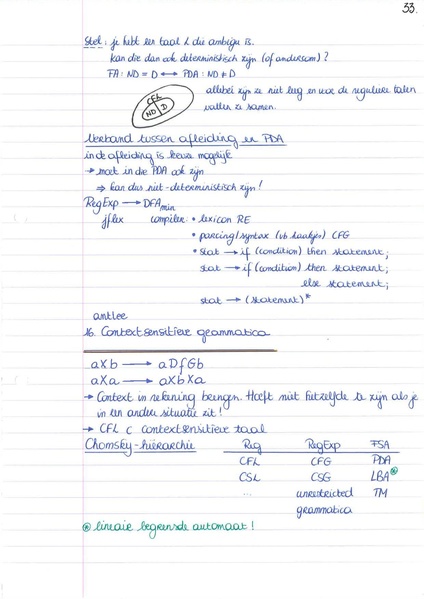 33.
Stel: je hebt een taal L die ambigu is.
kan die dan ook deterministisch zijn (of andersom)?
FA: ND = D ↔ PDA: ND ≠ D
CFL
ND D
allebei zijn ze niet leeg en voor de reguliere talen
vallen ze samen.
Verband tussen afleiding en PDA
in de afleiding is keuze mogelijk
→ moet in die PDA ook zijn
⇒ kan dus niet-deterministisch zijn!
RegExp → DFAmin
jflex compiler: • lexicon RE
• parcing/syntax (vb haakjes) CFG
• stat → if (condition) then statement;
stat → if (condition) then statement;
else statement;
stat → (statement)*
antlee
16. Contextsensitieve grammatica
aXb → aDfGb
aXa → aXbXa
→ Context in rekening brengen. Hoeft niet hetzelfde te zijn als je
in een andere situatie zit!
→ CFL ⊂ contextsensitieve taal
Chomsky-hiërarchie Reg RegExp FSA
CFL CFG PDA
CSL CSG LBA⊛
... unrestricted TM
grammatica
⊛ lineair begrensde automaat!